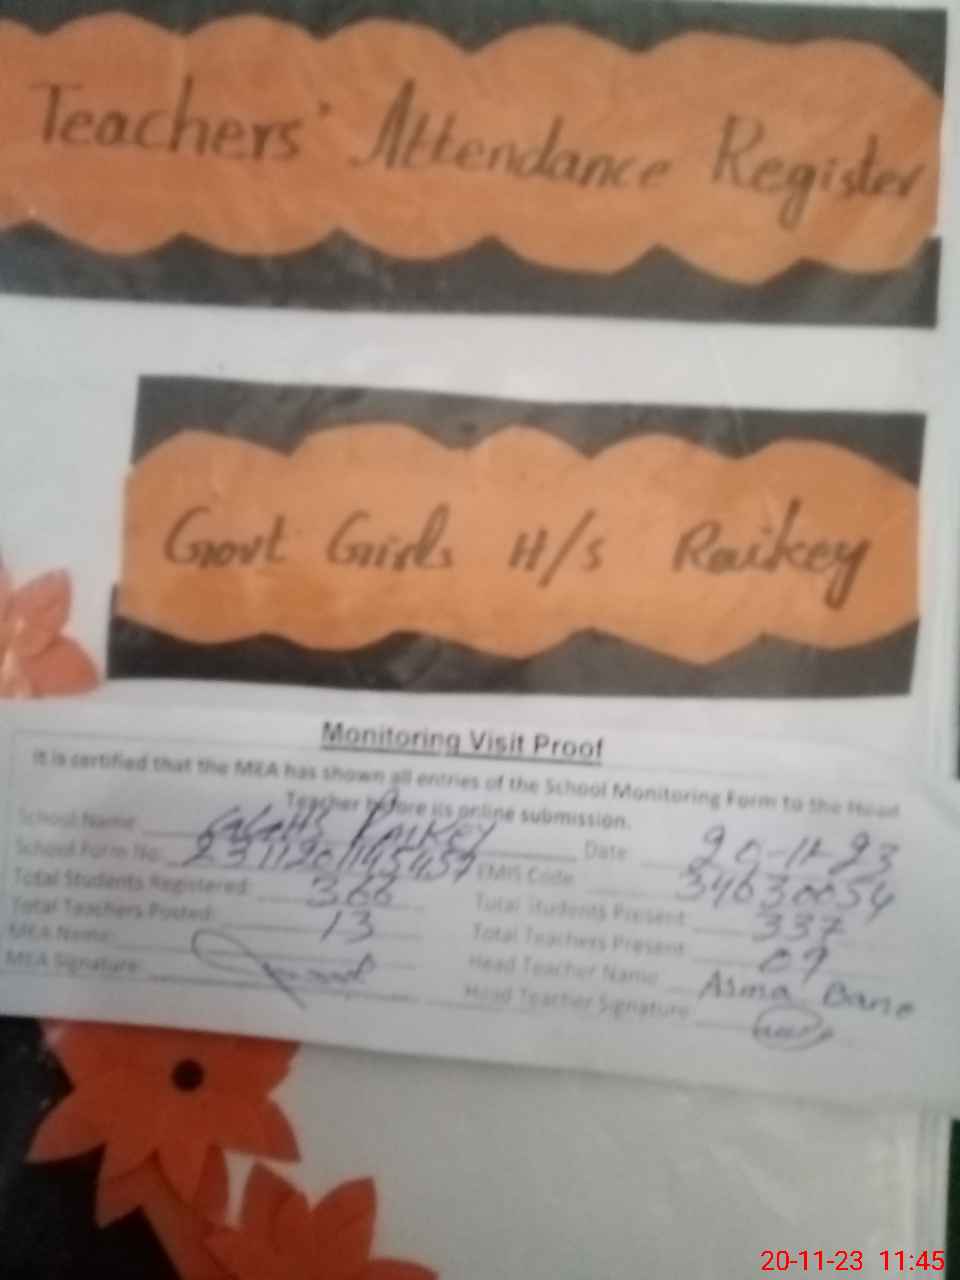 Teachers' Attendance Register
Govt Girls H/S Raikey
Monitoring Visit Proof
It is certified that the MEA has shown all entries of the School Monitoring Form to the Head
Teacher before its online submission.
School Name GGHS Raikey Date: 20-11-23
School Form No: 2311201145457 EMIS Code: 34630054
Total Students Registered: 366 Total Students Present: 337
Total Teachers Posted: 13 Total Teachers Present: 09
MEA Name: Head Teacher Name: Asma Bano
MEA Signature: Head Teacher Signature:
20-11-23 11:45